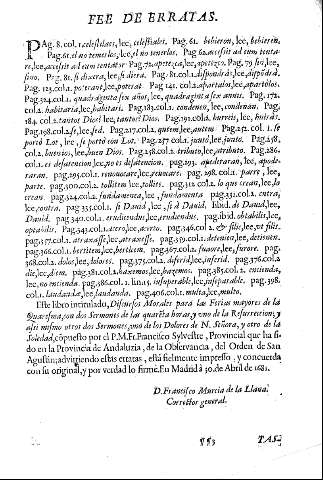 FEE DE ERRATAS.
PAg. 8. col.1. celestiaes, lee, celestiales. Pag. 61. bebieron, lee, bebieren.
Pag. 61. el no tenerlos, lee, el no tenerlos. Pag. 62. accessit ad eum tenta-
re, lee, accessit ad eum tentator. Pag. 72. apeteça, lee, apetezco. Pag. 79 sin, lee,
sino. Pag. 81. si dixera, lee, si diera. Pag. 81. col.2. disponded, lee, disponed.
Pag. 123. col.2. poterant, lee, poterat. Pag. 141. col.2. apartalos, lee, apartólos.
Pag. 324. col.1. quadragenta sex años, lee, quadraginta sex annis. Pag. 172.
col.2. habitaria, lee, habitari. Pag. 183. col.2. condeneo, lee, condenan. Pag.
184. col.2. tantos Dios! lee, tantos! Dios. Pag. 192. col.2. hureis, lee, huirás.
Pag. 198. col.2. se, lee, sed. Pag. 217. col.2. quem, lee, autem. Pag. 252. col. 1. se
portò Lot, lee, se portò con Lot. Pag. 257 col.2. juntò, lee, junto. Pag. 258.
col.2. buenios, lee, buen Dios. Pag. 258. col.2. tributo, lee, atributo. Pag. 286.
col.1. es desatencion, lee, no es desatencion. pag. 293. apederaran, lee, apode-
raran. pag. 295. col.1. renonocare, lee, renouare. pag. 298. col.1. paern, lee,
parte. pag. 300. col.2. tollitem lee, tollits. pag. 312 col.2. lo que crean, lee, lo
crean. pag. 324. col.2. fundamenca, lee, fundamenta pag. 331. col.2. entra,
lee, contra. pag. 335. col.1. si Dauid, lee, si à Dauid. Ibid. de Dauid, lee,
Dauid. pag. 340. col.2. erudiendus, lee, erudiendus. pag. ibid. obtabilis, lee,
optabilis. Pag. 343. col.1. acero, lee, acerto. pag. 346 col.2. & filis, lee, vt filii.
pag. 357. col.2. atraxasse, lee, atraxesse. pag. 359. col.2. detenien, lee, detienen.
pag. 366. col.1. berithem, lee, bethlem. pag. 367. col.1. fouore, lee, furore. pag.
368. col.2. doles, lee, dolores. pag. 375. col.2. deferid, lee, inferid. pag. 376. col.2
die, lee, diem. pag. 381. col.2. hazemos, lee, hazemos. pag. 385. col.2. entienda,
lee, no entienda. pag. 386. col.2. lin. 15. insuperable, lee, inseparable. pag. 398.
col.1. laudandæ, lee, laudanda. pag. 406. col.2. multa, lee, multo.
Este libro intitulado, Discursos Morales para las Ferias mayores de la
Quaresma, con dos Sermones de las quarēta horas, y vno de la Resurreccion, y
assi mismo otros dos Sermones, vno de los Dolores de N. Señora, y otro de la
Soledad, cōpuesto por el P.M. Fr. Francisco Sylvestre, Provincial que ha si-
do en la Provincia de Andaluzia, de la Observancia, del Orden de San
Agustin, advirtiendo estas erratas, està fielmente impresso, y concuerda
con su original, y por verdad lo firmè. En Madrid à 30. de Abril de 1681.
D. Francisco Murcia de la Llana.
Corrector general.
¶¶3 TAS-